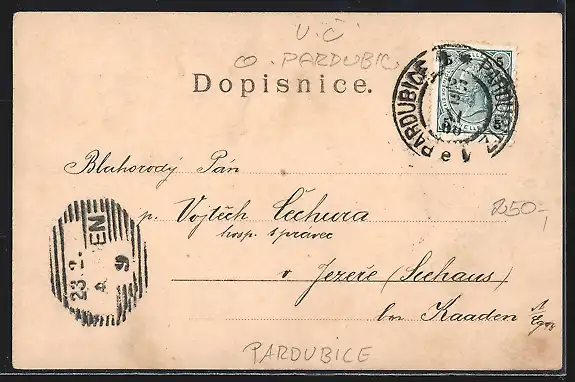 V.Č
O. PARDUBIC
Dopisnice.
PARDUBICE PARDUBITZ
Bluhorodý Pán
p. Vojtěch Čechura
hosp. správec
250-,
v Jezeře (Seehaus)
bei Kaaden
23 2
9
PARDUBICE